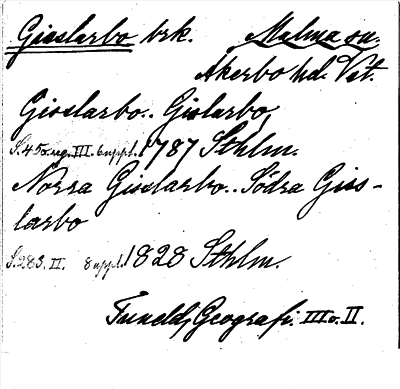 Gisslarbo brk. Malma sn.
Åkerbo hd. Vst.
Gisslarbo.. Gislarbo
S. 45 o. ng. III. 6 uppl. 1787 Sthlm.
Norra Gisslarbo.. Södra Giss-
larbo
S. 283. II. 8 uppl. 1828 Sthlm.
Tuneld, Geografi. III o. II.